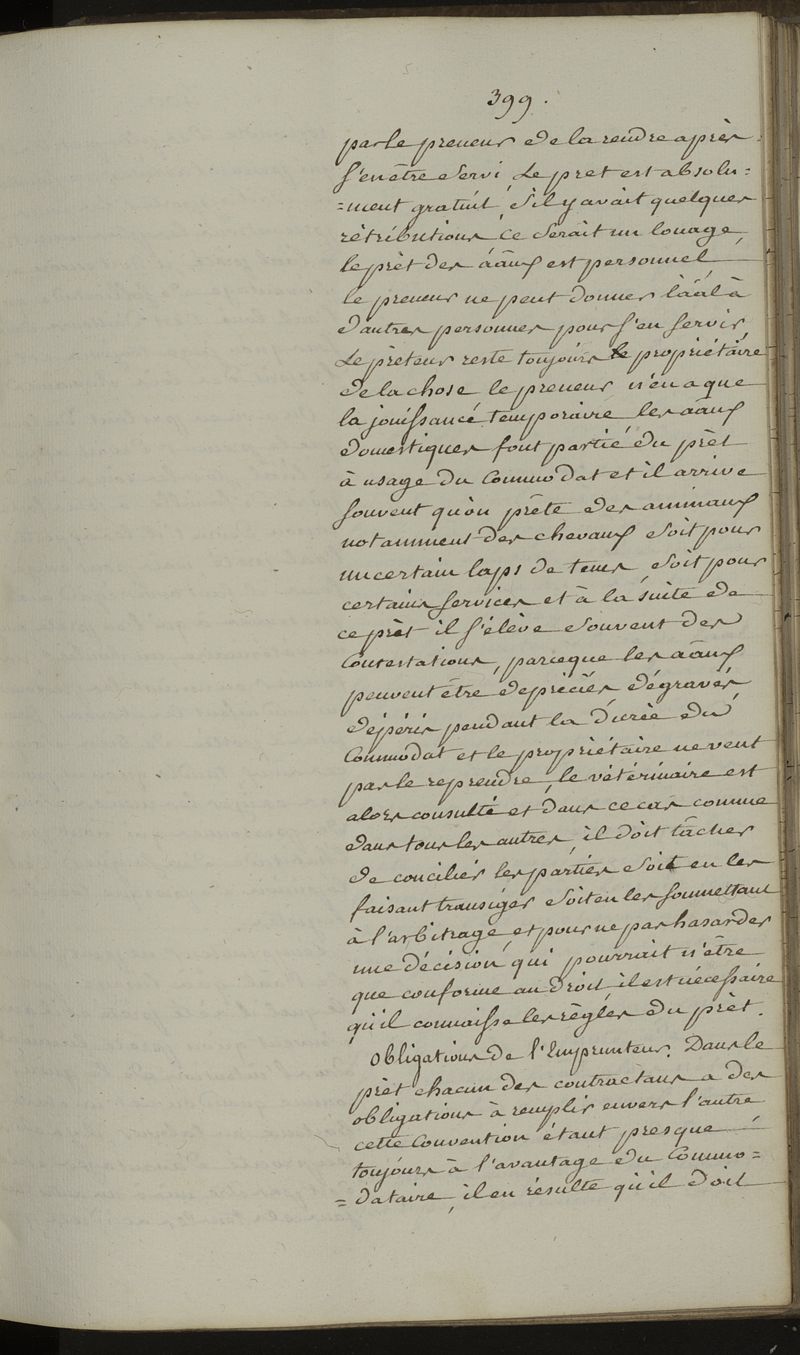 399.
par le preneur de la rendre après
s'en être servi, Le pret est absolu=
=ment gratuit, s'il y avait quelques
rètributions ce serait un louage,
le prèt des ááux est personnel
le preneur ne peut donner lâál à
d'autres personnes pour s'en servir,
Le prèteur reste toujours le propriétaire
de la chose, le preneur n'en a que
la jouissance temporaire les aâux
domestiques font partie du prèt
à usage du Commodat et il arrive
souvent qu'on prête des aminaux
notamment des chevaux soit pour
un certain laps de tems, soit pour
certains services et à la suite de
ce prèt il s'élève souvent des
Contestations, parceque les aâux
peuvent être depréciés dégravés,
dépéris pendant la durée du
Commodat et le propriétaire ne veut
pas le reprendre, le vétérinaire est
alors consulté et dans ce cas comme
dans tous les autres, il doit tâcher
de concilier les parties soit en les
faisant transiger soit en les soumettant
à l'arbitrage, et pour ne pas hasarder
une décision qui pourrait n'être
que conforme au droit, il est nécessaire
qu'il connaisse les règles du prèt.
Obligations de l'Emprunteur. Dans le
prèt chacun des contractans a des
obligations à remplir envers l'autre
cette Convention étant presque
toujours à l'avantage du Commo=
=dataire, il en résulte qu'il doit